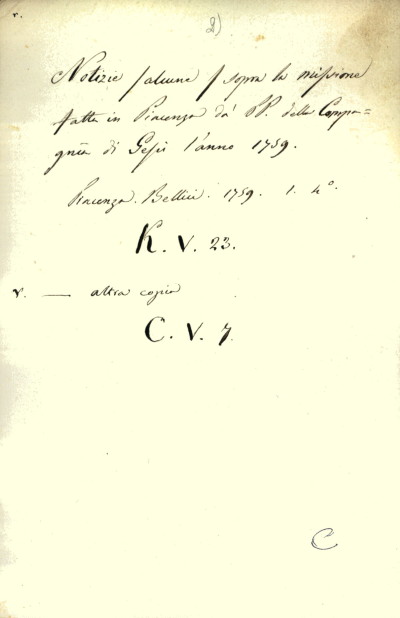 v.
2)
Notizie /alcune/ sopra la missione
fatta in Piacenza da' PP. della Compa=
gnia di Gesù l'anno 1759.
Piacenza. Bellici. 1759. 1. 4°.
K. V. 23.
v. — altra copia
C. V. 7.
C